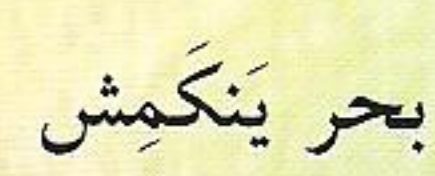 بحر يَنكَمِش